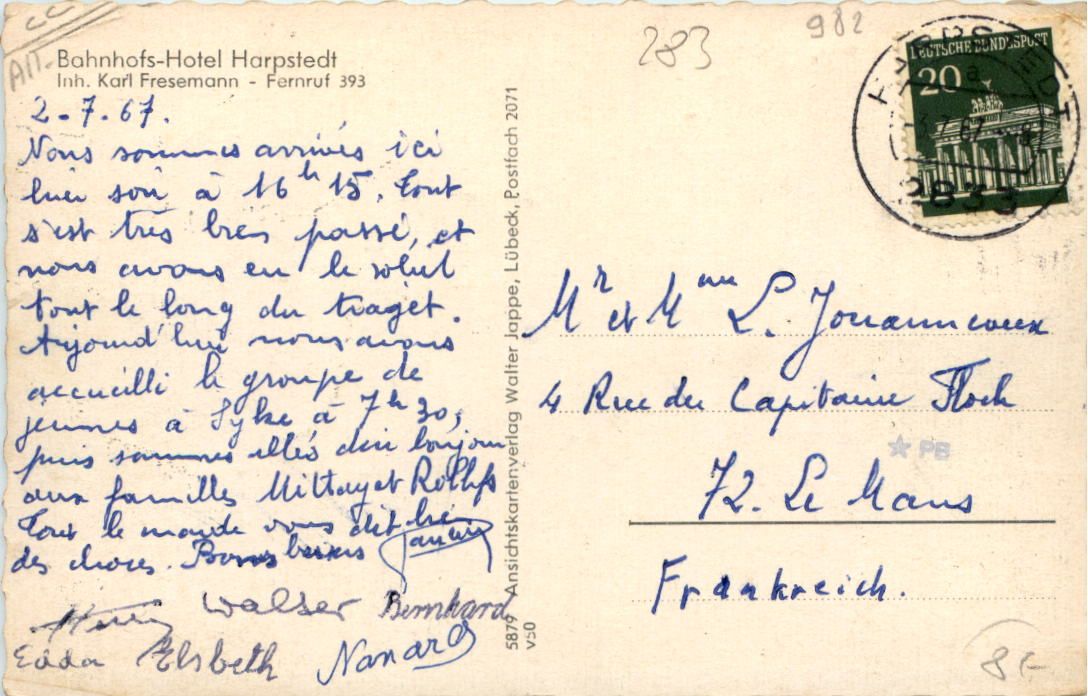 Bahnhofs-Hotel Harpstedt
Inh. Karl Fresemann - Fernruf 393
2-7.67.
Nous sommes arrivés ici
hier soir à 16h 15. Tout
s'est très bien passé, et
nous avons eu le soleil
tout le long du trajet.
Aujourd'hui nous avons
accueilli le groupe de
jeunes à Syke à 7h30,
puis sommes allés dire bonjour
aux familles Mittag et Rohlfs
Tout le monde vous dit
des choses. Bons baisers
Walser Bernhard
Edda Elsbeth Nanard
5879 Ansichtskartenverlag Walter Jappe, Lübeck, Postfach 2071
V50
283
982
DEUTSCHE BUNDESPOST
20
HARPSTEDT
a
2833
Mr et Mme L. Jouanneaux
4 Rue du Capitaine Floch
PB
72. Le Mans
Frankreich.
8-